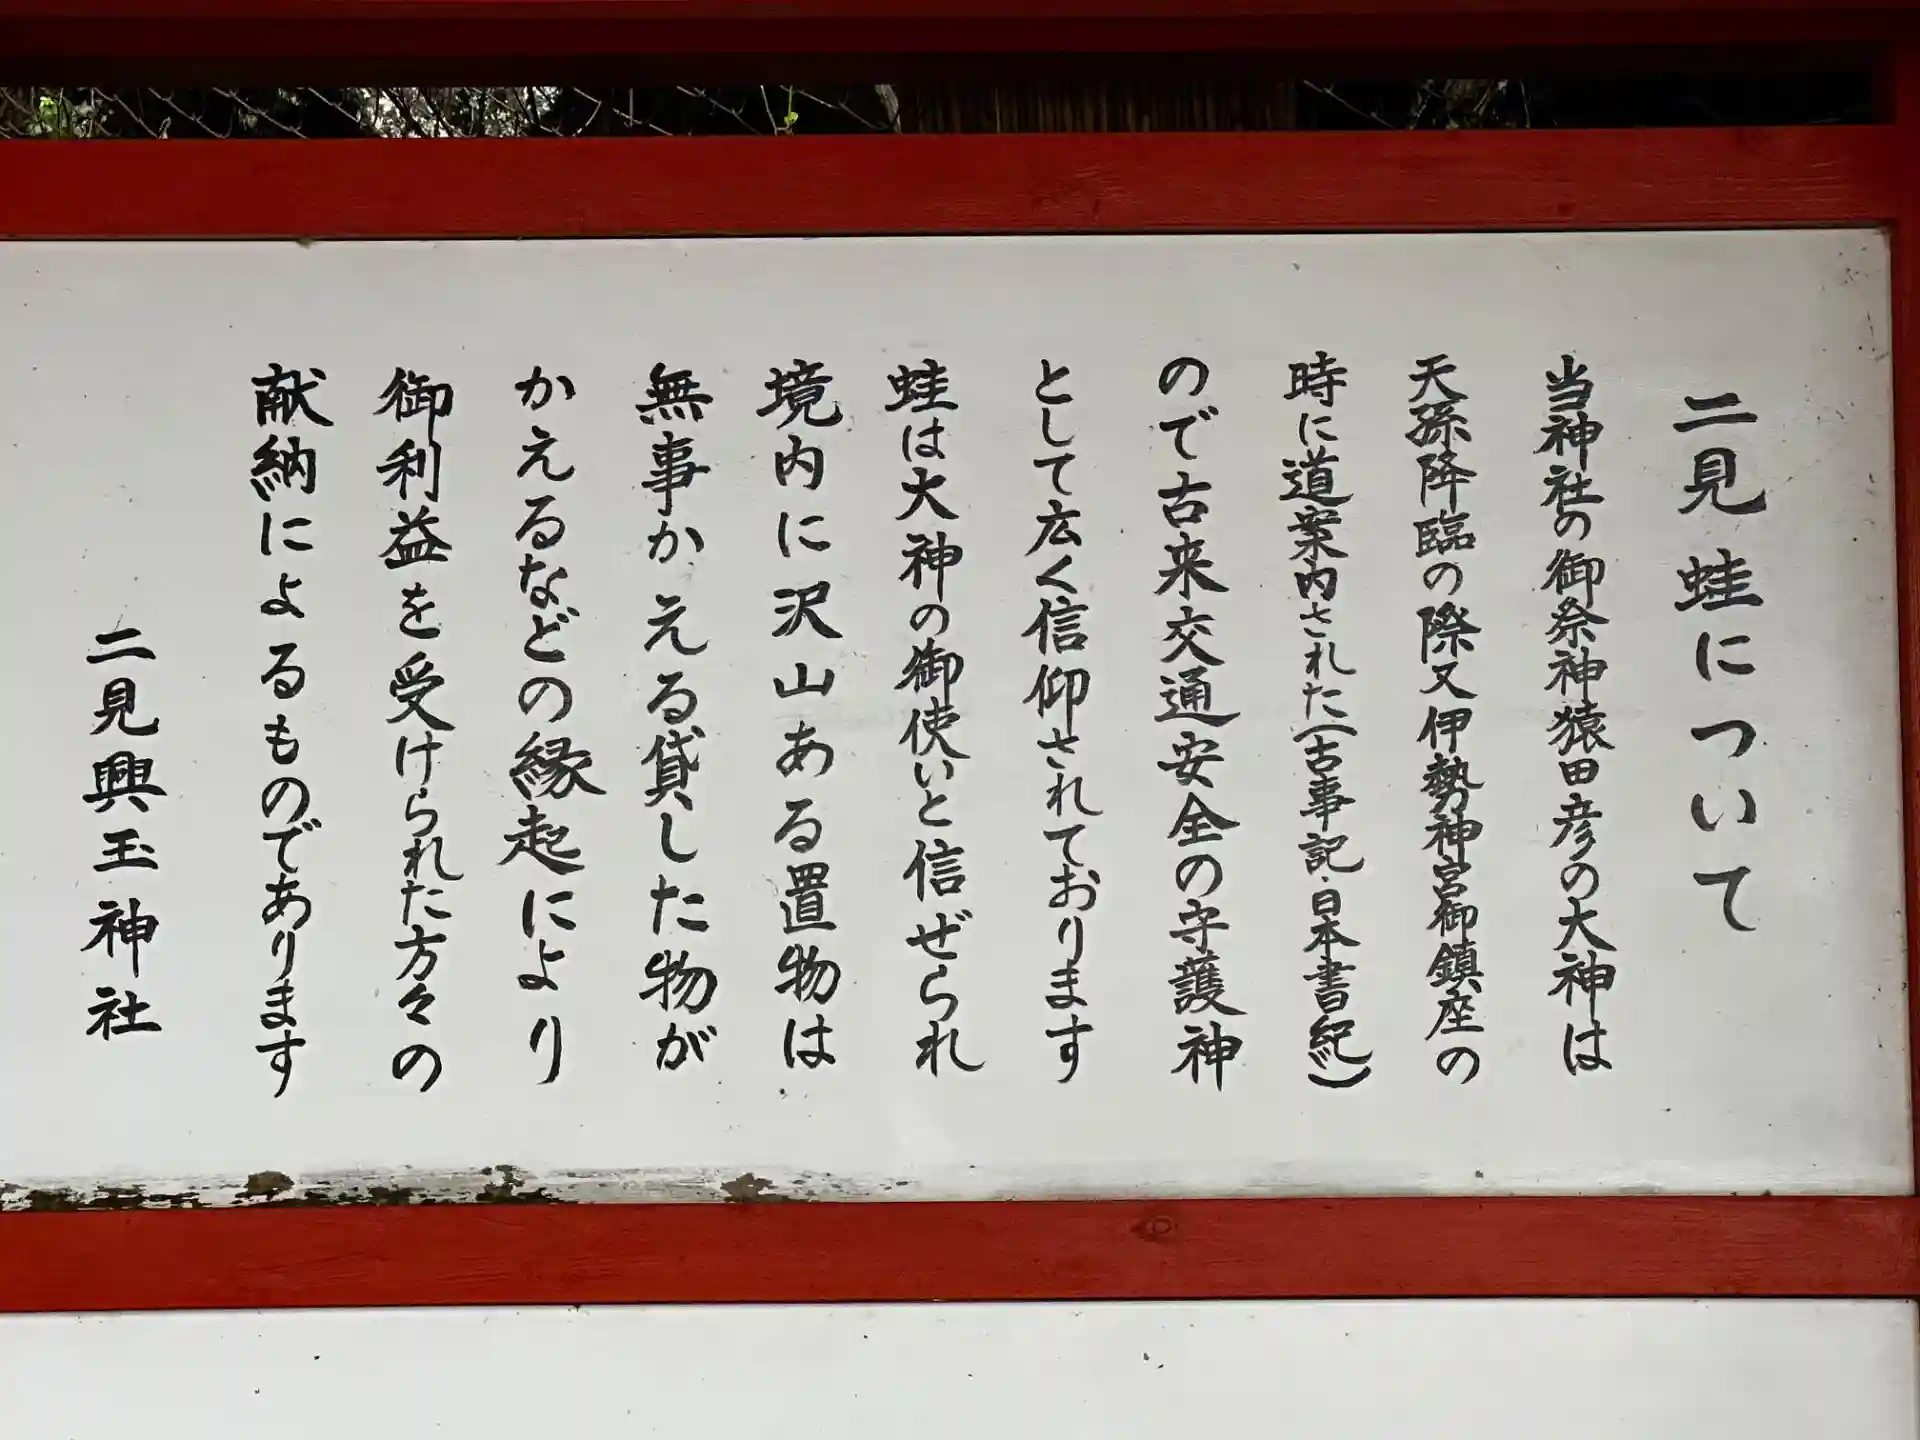 二見蛙について
当神社の御祭神猿田彦の大神は
天孫降臨の際又伊勢神宮御鎮座の
時に道案内された(古事記・日本書紀)
ので古来交通安全の守護神
として広く信仰されております
蛙は大神の御使いと信ぜられ
境内に沢山ある置物は
無事かえる貸した物が
かえるなどの縁起により
御利益を受けられた方々の
献納によるものであります
二見興玉神社